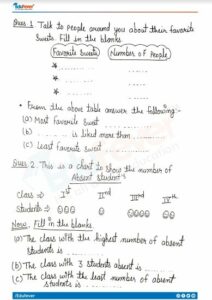 Ques 1. Talk to people around you about their favorite
Sweets Fill in the blanks.
Favorite Sweets Number of People
* ..... .....
* ..... .....
* ..... .....
• From the above table answer the following:-
(a) Most favorite Sweet .....
(b) ..... is liked more than .....
(c) Least favorite sweet .....
Ques 2. This is a chart to show the number of
Absent students
Class ⇒ Ist IInd IIIrd IVth
Students ⇒
Now, Fill in the blanks
(a) The class with the highest number of absent
students is .....
(b) The class with 3 students absent is .....
(c) The class with the least number of absent
students is .....